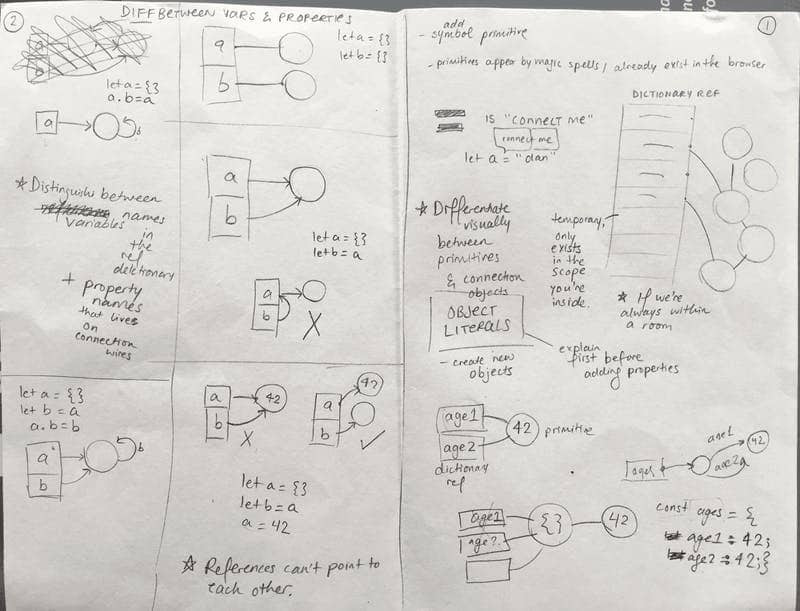 2
DIFF BETWEEN VARS & PROPERTIES
let a = {}
a.b = a
a
b
★ Distinguish between
variables names
in
the
ref
+ property
names
that lives
on
connection
wires
a
b
let a = {}
let b = {}
a
b
let a = {}
let b = a
a
b
X
let a = {}
let b = a
a.b = b
a
b
b
a
b
42
X
a
b
42
let a = {}
let b = a
a = 42
★ References can't point to
each other.
1
add
- symbol primitive
- primitives appear by magic spells / already exist in the browser
IS "CONNECT ME"
connect me
let a = "dan"
DICTIONARY REF
★ Differentiate
visually
between
primitives
& connection
objects
temporary,
only
exists
in the
scope
you're
inside.
★ If we're
always within
a room
OBJECT
LITERALS
- create new
objects
explain
first before
adding properties
age1
age2
42
primitive
dictionary
ref
ages
age1
age2
42
age1
age2
{}
42
const ages = {
age1 : 42;
age2 : 42;}